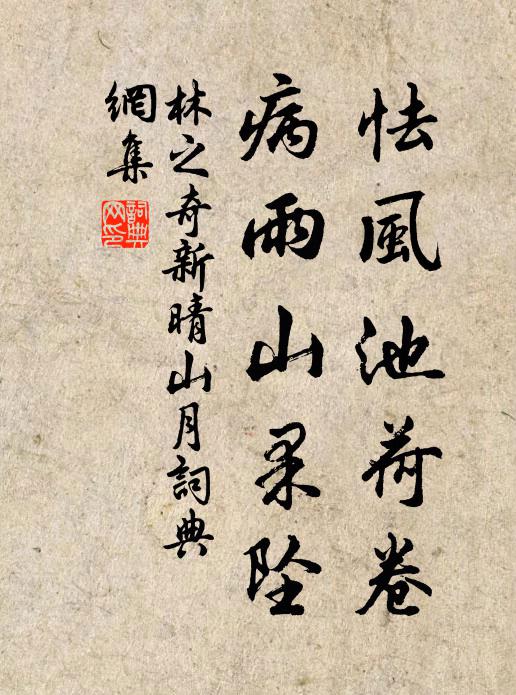 怯風池荷卷
病雨山果墜
林之奇新晴山月詞典
網集
詞典
网印